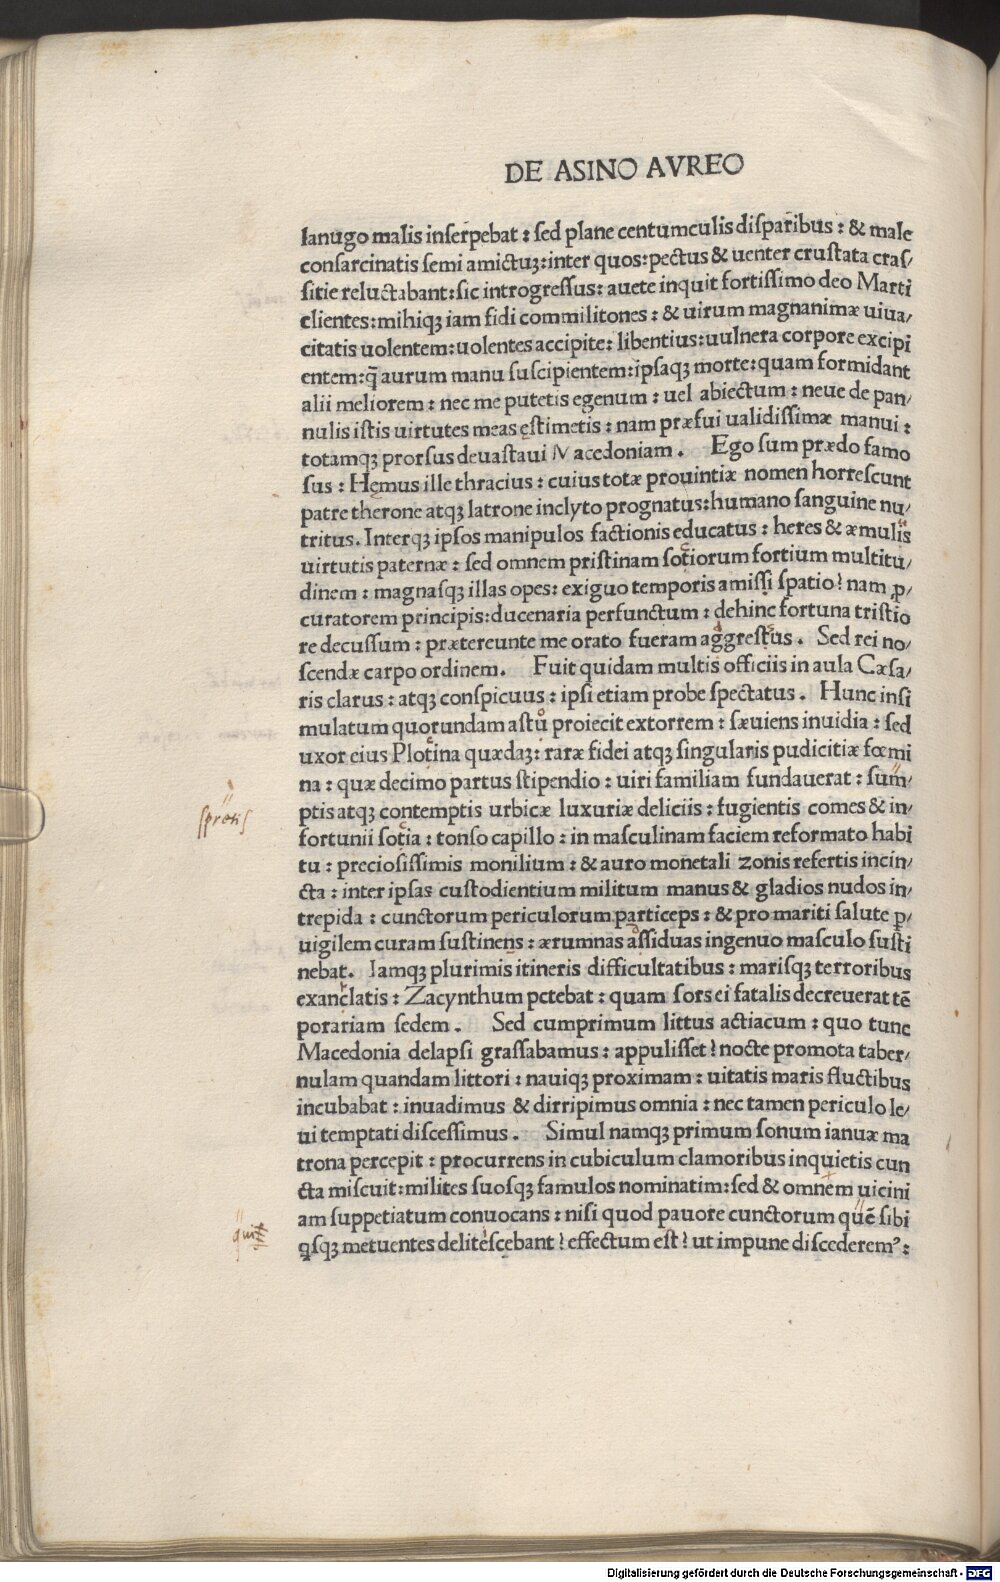 DE ASINO AVREO
lanugo malis inserpebat : sed plane centumculis disparibus : & male
consarcinatis semi amictuꝫ:inter quos:pectus & uenter crustata cras/
sitie reluctabant:sic introgressus: auete inquit fortissimo deo Marti
clientes:mihiqꝫ iam fidi commilitones : & uirum magnanimæ uiua/
citatis uolentem:uolentes accipite: libentius:uulnera corpore excipi
entem:q̄ aurum manu suscipientem:ipsaqꝫ morte:quam formidant
alii meliorem : nec me putetis egenum : uel abiectum : neue de pan/
nulis istis uirtutes meas ęstimetis : nam præfui ualidissimæ manui :
totamqꝫ prorsus deuastaui Macedoniam . Ego sum prædo famo
sus : Hęmus ille thracius : cuius totæ prouintiæ nomen horrescunt
patre therone atqꝫ latrone inclyto prognatus:humano sanguine nu/
tritus. Interqꝫ ipsos manipulos factionis educatus : heres & æmulis
uirtutis paternæ : sed omnem pristinam sotiorum fortium multitu/
dinem : magnasqꝫ illas opes : exiguo temporis amissi spatio? nam ꝓ/
curatorem principis:ducenaria perfunctum : dehinc fortuna tristio
re decussum : prætereunte me orato fueram aggrestus . Sed rei no/
scendæ carpo ordinem . Fuit quidam multis officiis in aula Cæsa/
ris clarus : atqꝫ conspicuus : ipsi etiam probe spectatus . Hunc insi
mulatum quorundam astu proiecit extorrem : sæuiens inuidia : sed
uxor eius Plotina quædaꝫ: raræ fidei atqꝫ singularis pudicitiæ fœmi
na : quæ decimo partus stipendio : uiri familiam fundauerat : sum/
ptis atqꝫ contemptis urbicæ luxuriæ deliciis : fugientis comes & in/
spretis
fortunii sotia : tonso capillo : in masculinam faciem reformato habi
tu : preciosissimis monilium : & auro monetali zonis refertis incin/
cta : inter ipsas custodientium militum manus & gladios nudos in/
trepida : cunctorum periculorum particeps : & pro mariti salute ꝑ/
uigilem curam sustinens : ærumnas assiduas ingenuo masculo susti
nebat. Iamqꝫ plurimis itineris difficultatibus : marisqꝫ terroribus
exanclatis : Zacynthum petebat : quam sors ei fatalis decreuerat tē
porariam sedem . Sed cumprimum littus actiacum : quo tunc
Macedonia delapsi grassabamus : appulisset? nocte promota taber/
nulam quandam littori : nauiqꝫ proximam : uitatis maris fluctibus
incubabat : inuadimus & dirripimus omnia : nec tamen periculo le/
ui temptati discessimus . Simul namqꝫ primum sonum ianuæ ma
trona percepit : procurrens in cubiculum clamoribus inquietis cun
cta miscuit:milites suosqꝫ famulos nominatim:sed & omnem uicini
am suppetiatum conuocans : nisi quod pauore cunctorum quē sibi
qsqꝫ metuentes delitescebant ? effectum est? ut impune discederemꝰ :